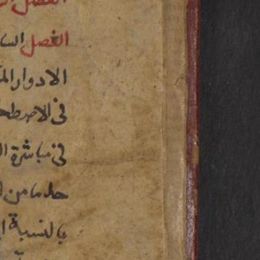 الفصل
الفصل السا
الادوار الم
فى الاصطحا
فى مباشرة ا
جلها من ا
بالنسبة ا